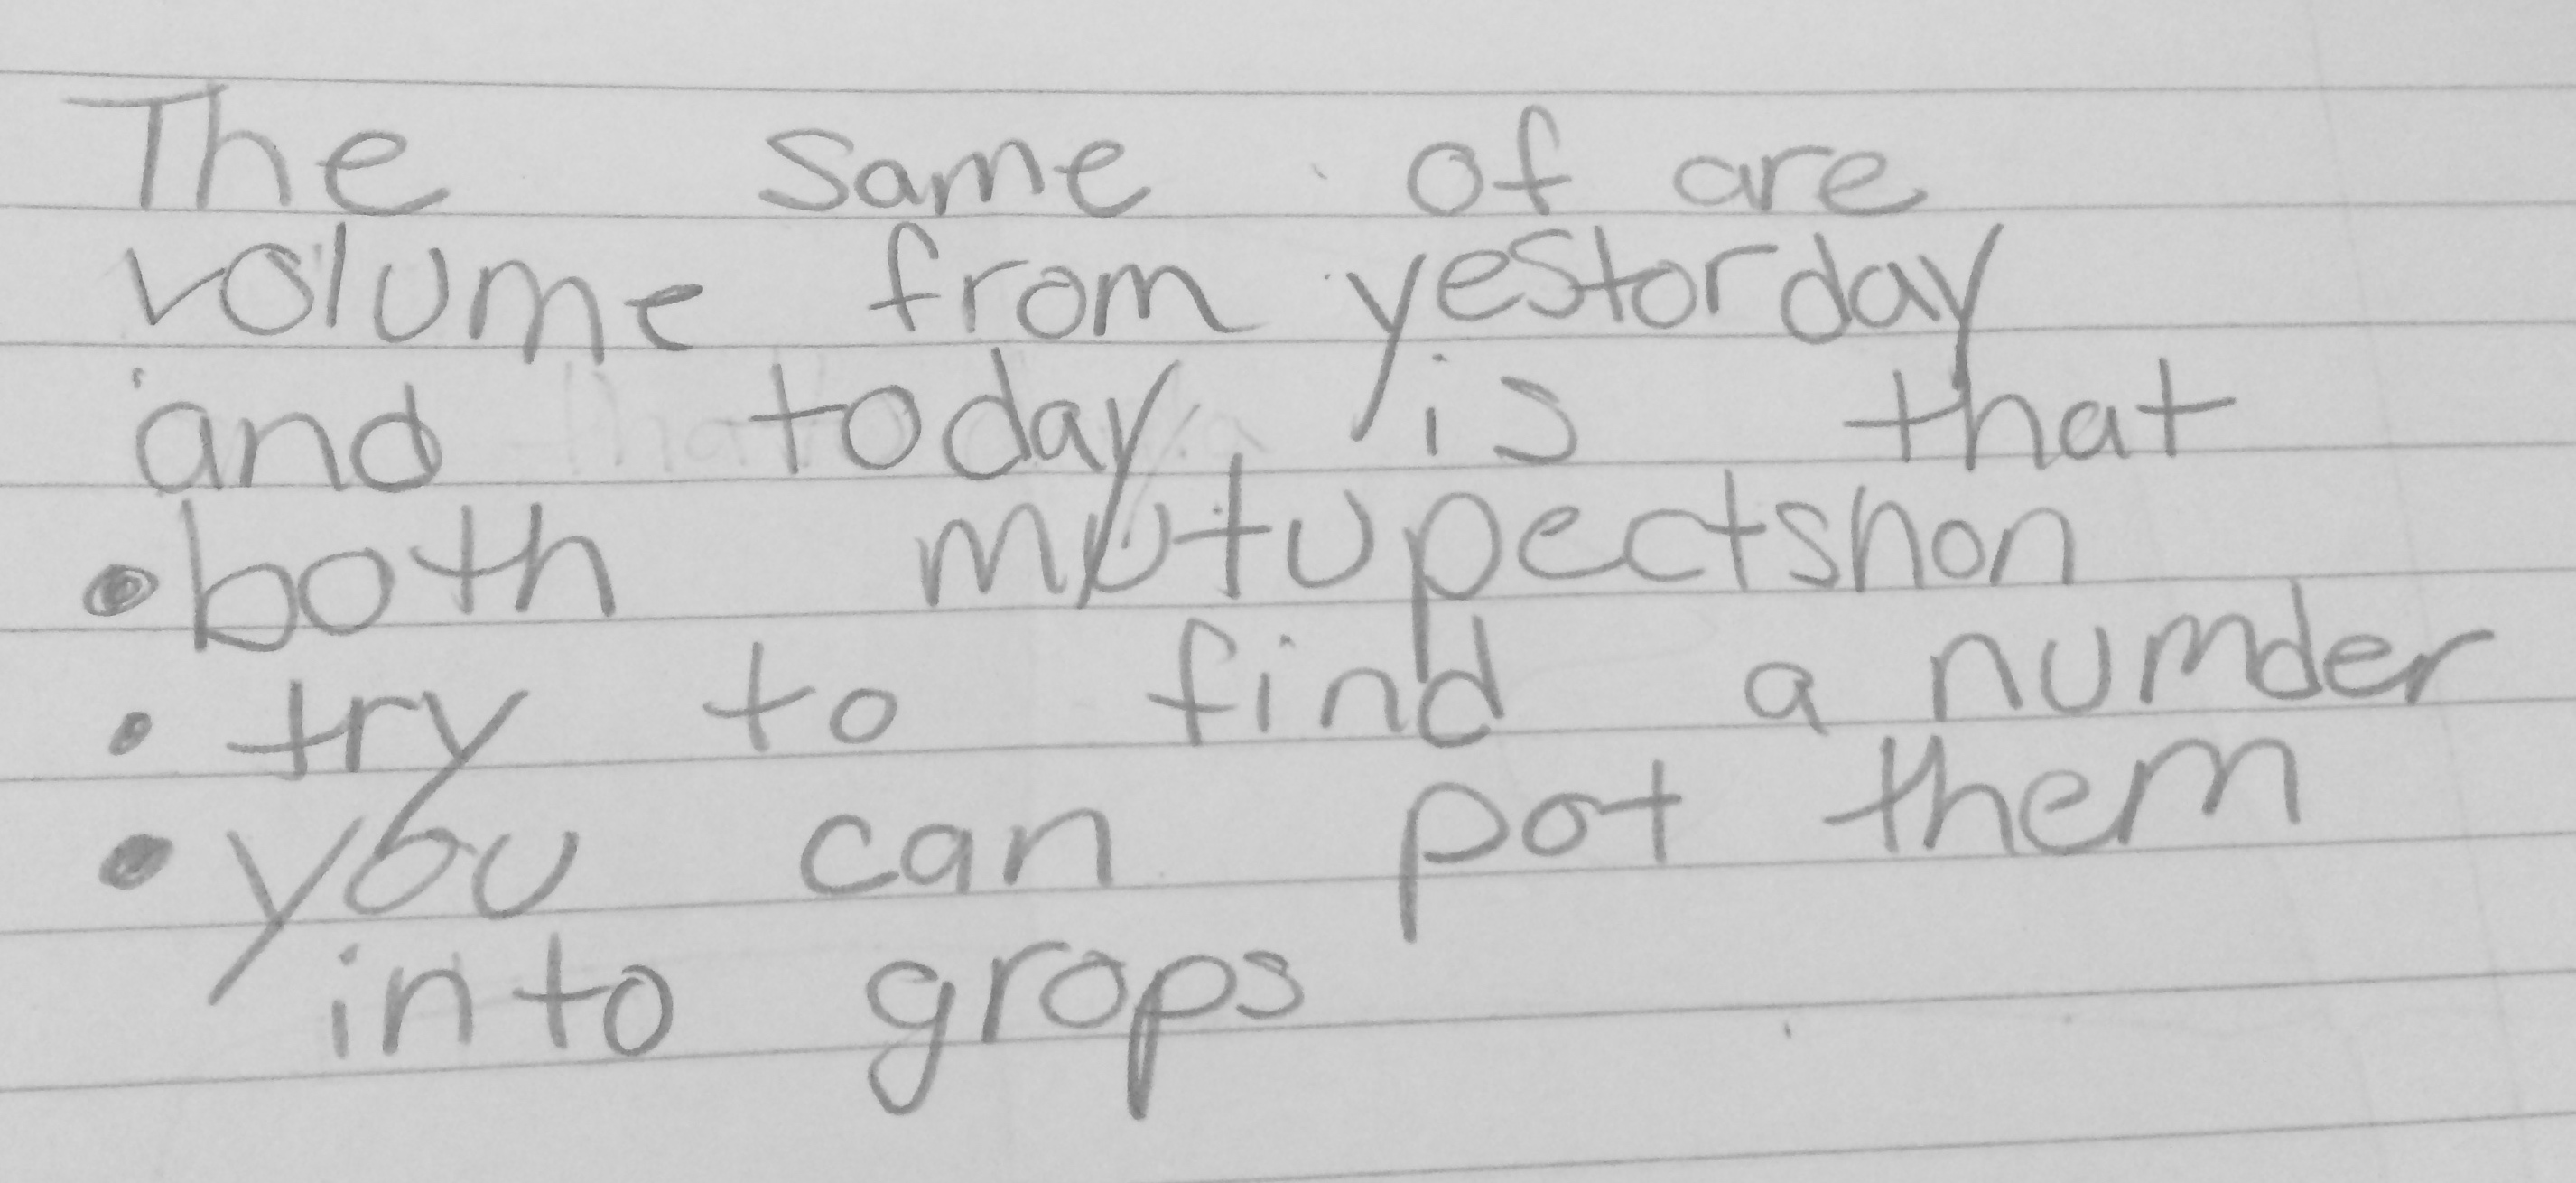 The same of are
volume from yestorday
and today is that
•both mutupectshon
• try to find a numder
• you can pot them
into grops